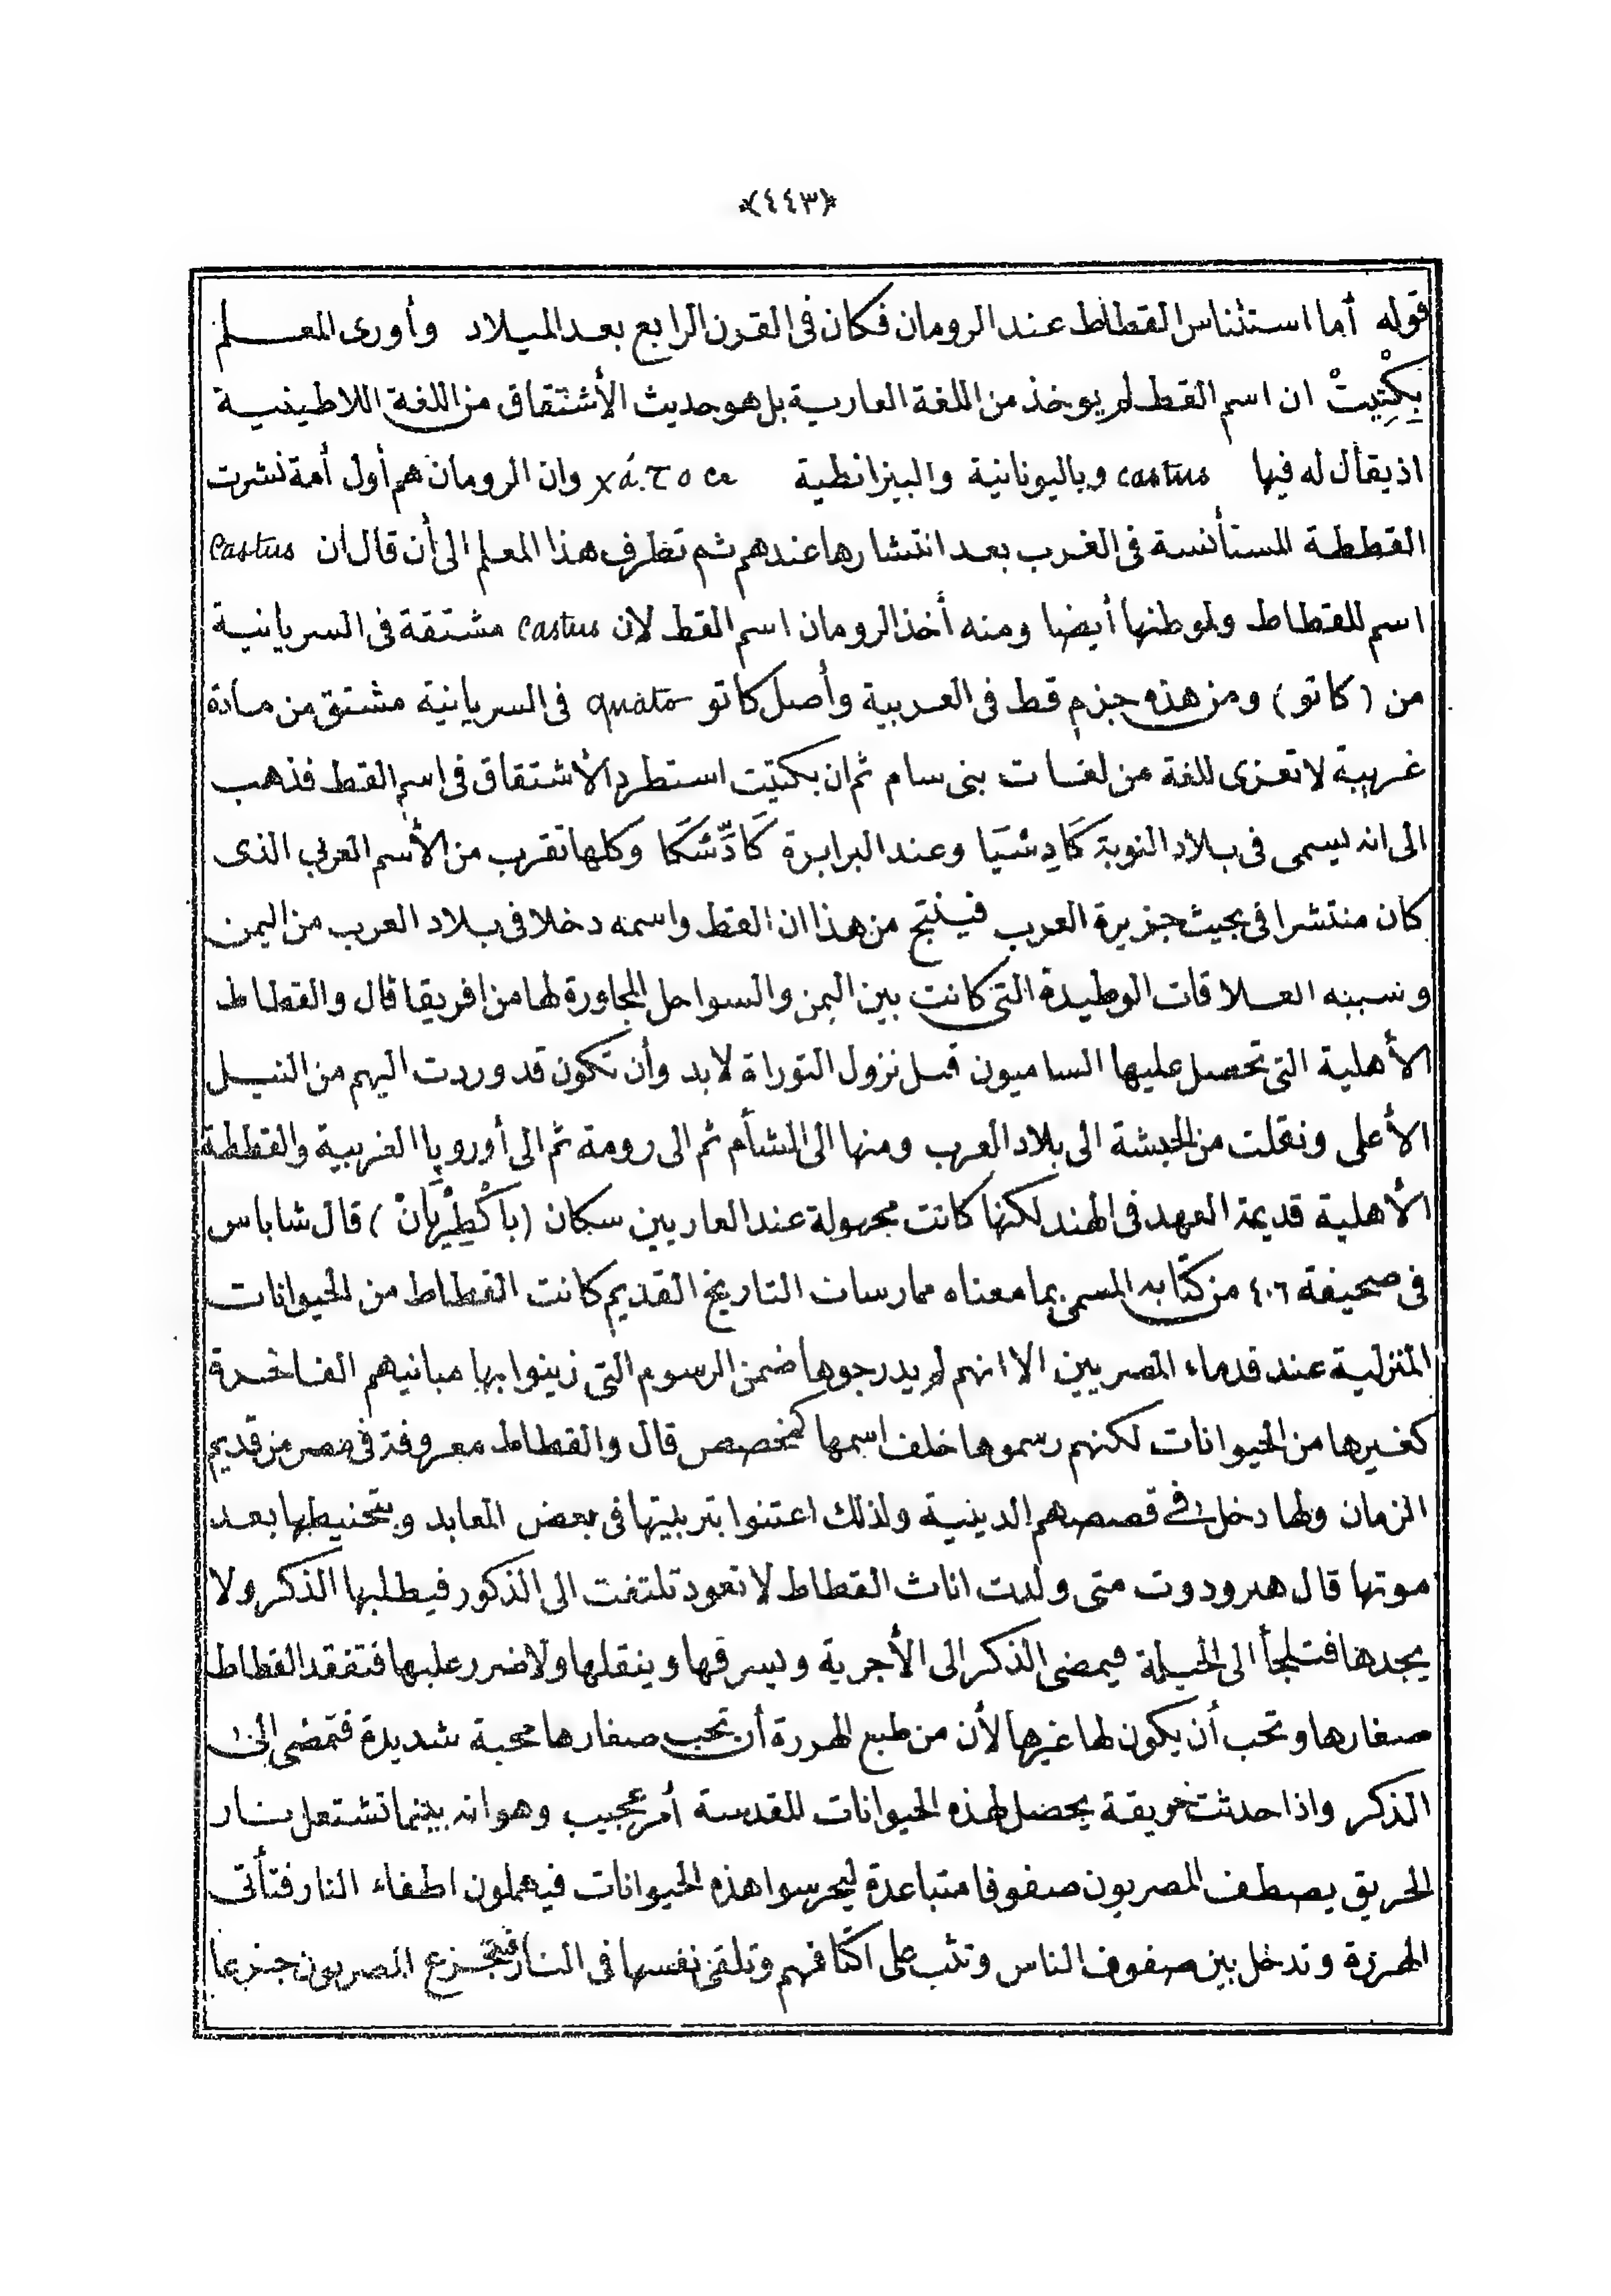 ﴿٤٤٣﴾
قوله أما استئناس القطاط عند الرومان فكان فى القرن الرابع بعد الميلاد وأورى المعلم
بِكْتِيتْ ان اسم القط لم يوخذ من اللغة العارية بل هو حديث الأشتقاق من اللغة اللاطينية
اذ يقال له فيها castus وباليونانية والبيزانطية وان الرومان هم أول أمة نشرت
القططة المستأنسة فى الغرب بعد انتشارها عندهم ثم تطرف هذا المعلم الى أن قال ان Castus
اسم للقطاط ولموطنها أيضا ومنه أخذ الرومان اسم القط لان Castus مشتقة فى السريانية
من (كاتو) ومن هذه جزم قط فى العربية وأصل كاتو quato فى السريانية مشتق من مادة
غريبة لا تعزى للغة من لغات بنى سام ثم ان بكتيت استطرد الأشتقاق فى اسم القط فذهب
الى انه يسمى فى بلاد النوبة كَادِسْيَا وعند البرابرة كَادِّشْكَا وكلها تقرب من الأسم العربي الذى
كان منتشرا فى بحيث جزيرة العرب فينتج من هذا ان القط واسمه دخلا فى بلاد العرب من اليمن
وسببه العلاقات الوطيدة التى كانت بين اليمن والسواحل المجاورة لها من افريقا قال والقطاط
الأهلية التى تحصل عليها الساميون قبل نزول التوراة لابد وأن تكون قد وردت اليهم من النيل
الأعلى ونقلت من الحبشة الى بلاد العرب ومنها الى الشأم ثم الى رومة ثم الى أوروپا الغربية والقططة
الأهلية قديمة العهد فى الهند لكنها كانت مجهولة عند العاريين سكان (بَاكْطِرْيَانْ) قال شاباس
فى صحيفة ٤٠٦ من كتابه المسمى بما معناه ممارسات التاريخ القديم كانت القطاط من الحيوانات
المنزلية عند قدماء المصريين الا انهم لم يدرجوها ضمن الرسوم التى زينوا بها مبانيهم الفاخرة
كغيرها من الحيوانات لكنهم رسموها خلف اسمها كمخصص قال والقطاط معروفة فى مصر من قديم
الزمان ولها دخل فى قصصهم الدينية ولذلك اعتنوا بتربيتها فى بعض المعابد وبتحنيطها بعد
موتها قال هرودوت متى ولدت اناث القطاط لا تعود تلتفت الى الذكور فيطلبها الذكر ولا
يجدها فتلجأ الى الحيلة فيمضى الذكر الى الأجرية ويسرقها وينقلها ولا ضرر عليها فتفقد القطاط
صغارها وتحب أن يكون لها غيرها لأن من طبع الهررة أن تحب صغارها محبة شديدة فتمضى الى
الذكر واذا حدثت حريقة يحصل لهذه الحيوانات المقدسة أمر عجيب وهو انه بينما تشتعل نار
الحريق يصطف المصريون صفوفا متباعدة ليحرسوا هذه الحيوانات فيهملون اطفاء النار فتأتى
الهررة وتدخل بين صفوف الناس وتثب على اكتافهم وتلقى نفسها فى النار فيجزع المصريون جزعا